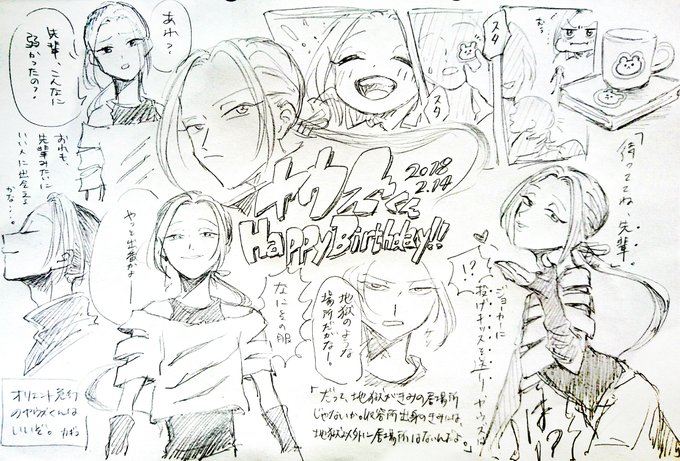 あれ?
先輩、こんなに
弱かったの?
スタ
スタ
むっ
「待っててね、先輩。
おれも、
先輩みたいに
いい人に出会える
かな…。
2018
2.14
ヤウズくん
Happy Birthday!!
やっと出番かよー
なにその服
!?
地獄のような
場所だかなー。
ジョーカーに
投げキッスを送りヤウズは
は!?
「だって、地獄がきみの居場所
じゃないか。収容所出身のきみには、
地獄以外に居場所はないんだよ。
オリエント急行
のヤウズくんは
いいぞ。